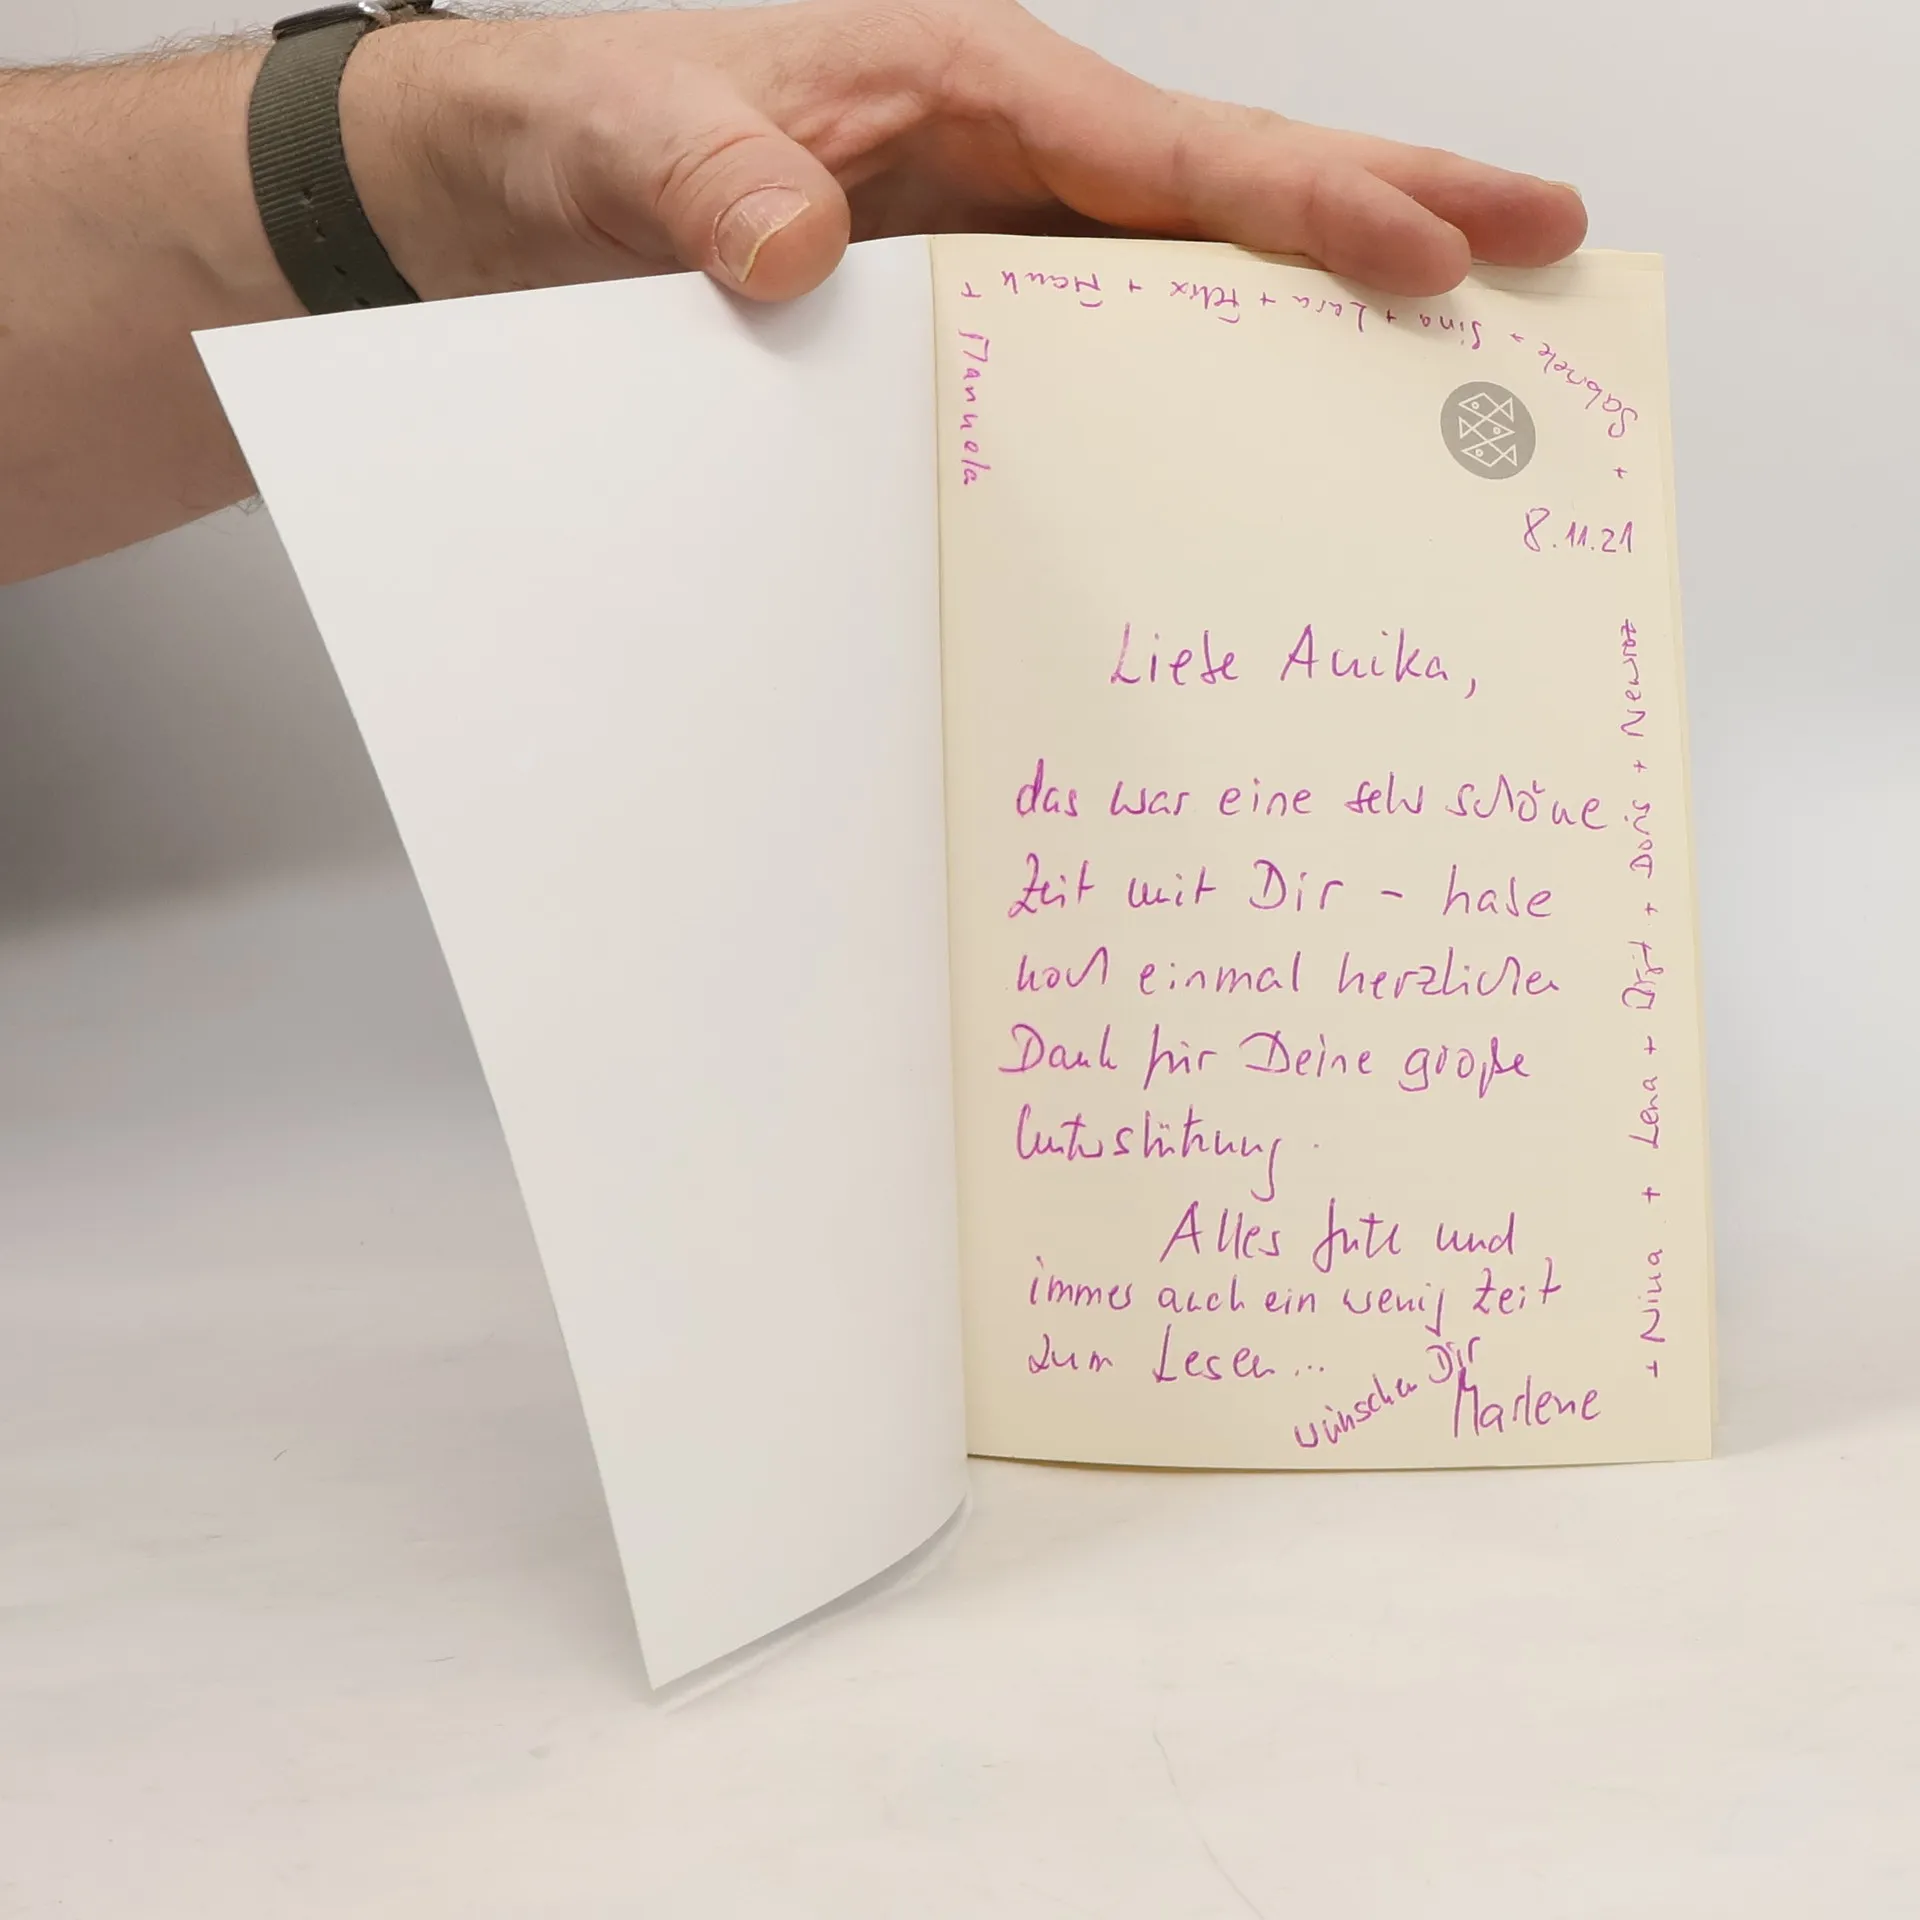 8.11.21
Liebe Anika,
das war eine sehr schöne
Zeit mit Dir - habe
noch einmal herzlichen
Dank für Deine große
Unterstützung.
Alles Gute und
immer auch ein wenig Zeit
zum Lesen...
wünschen Dir
Marlene
+ Nina + Lena + Birgit + Doris +
+ Gabriele + Sina + Lara + Felix + Frank +
Manuela